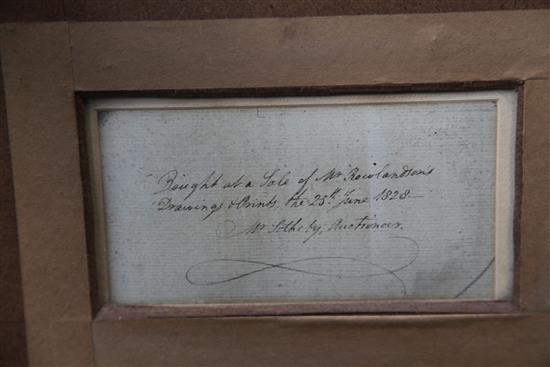 Bought at a Sale of Mr Rowlandson's
Drawings & Prints the 25th June 1828
Mr Sotheby, Auctioneer.